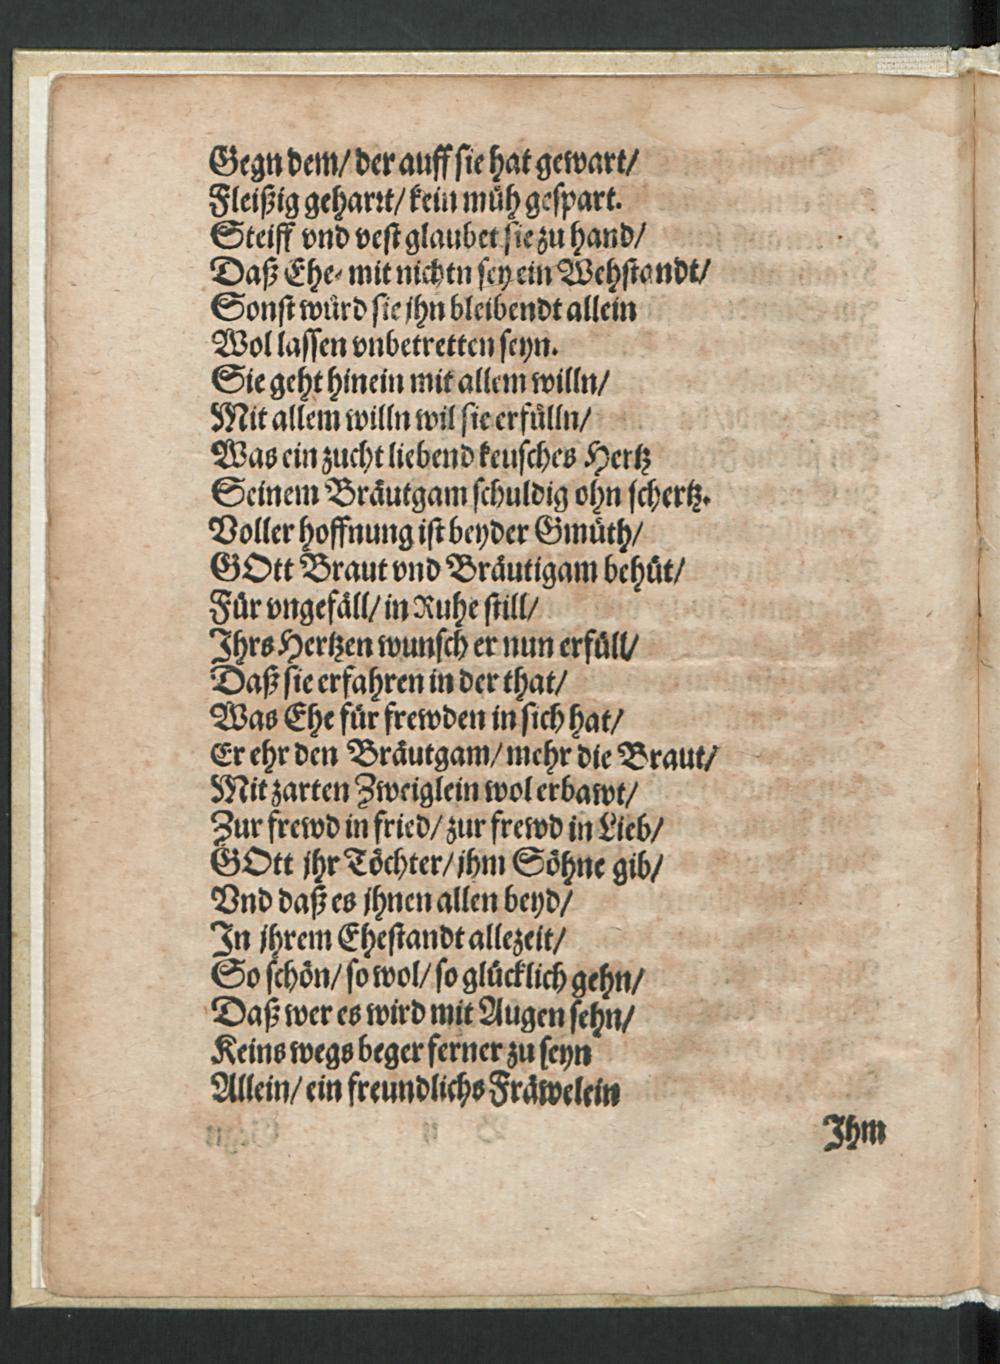 Gegn dem/ der auff sie hat gewart/
Fleißig geharrt/ kein müh gespart.
Steiff vnd vest glaubet sie zu hand/
Daß Ehe- mit nichtn sey ein Wehstandt/
Sonst würd sie jhn bleibendt allein
Wol lassen vnbetretten seyn.
Sie geht hinein mit allem willn/
Mit allem willn wil sie erfülln/
Was ein zucht liebend keusches Hertz
Seinem Bräutgam schuldig ohn schertz.
Voller hoffnung ist beyder Gmüth/
GOtt Braut vnd Bräutigam behüt/
Für vngefäll/ in Ruhe still/
Ihrs Hertzen wunsch er nun erfüll/
Daß sie erfahren in der that/
Was Ehe für frewden in sich hat/
Er ehr den Bräutgam/ mehr die Braut/
Mit zarten Zweiglein wol erbawt/
Zur frewd in fried/ zur frewd in Lieb/
GOtt jhr Töchter/ jhm Söhne gib/
Vnd daß es jhnen allen beyd/
In jhrem Ehestandt allezeit/
So schön/ so wol/ so glücklich gehn/
Daß wer es wird mit Augen sehn/
Keins wegs beger ferner zu seyn
Allein/ ein freundlichs Fräwelein
Ihm